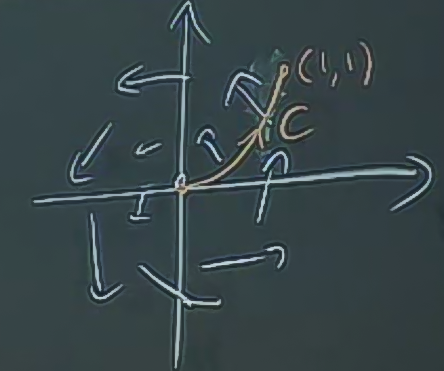 (1,1)
C